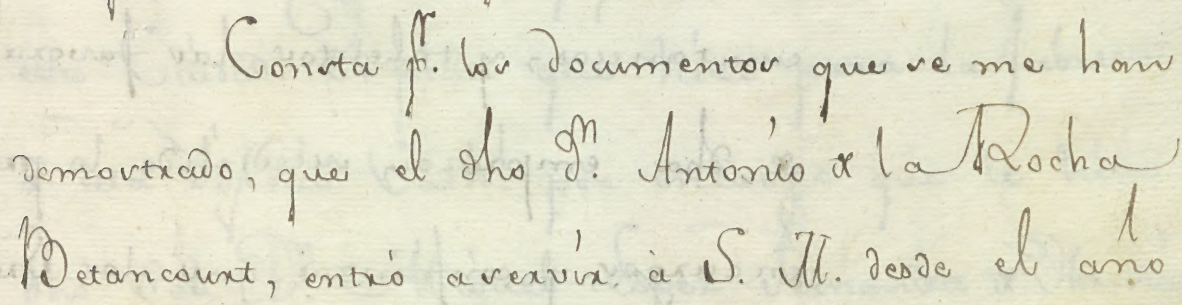 Consta pr. los documentos que se me han
demostrado, que el dho dn. Antonio de la Rocha
Betancourt, entró a servir à S. M. desde el año